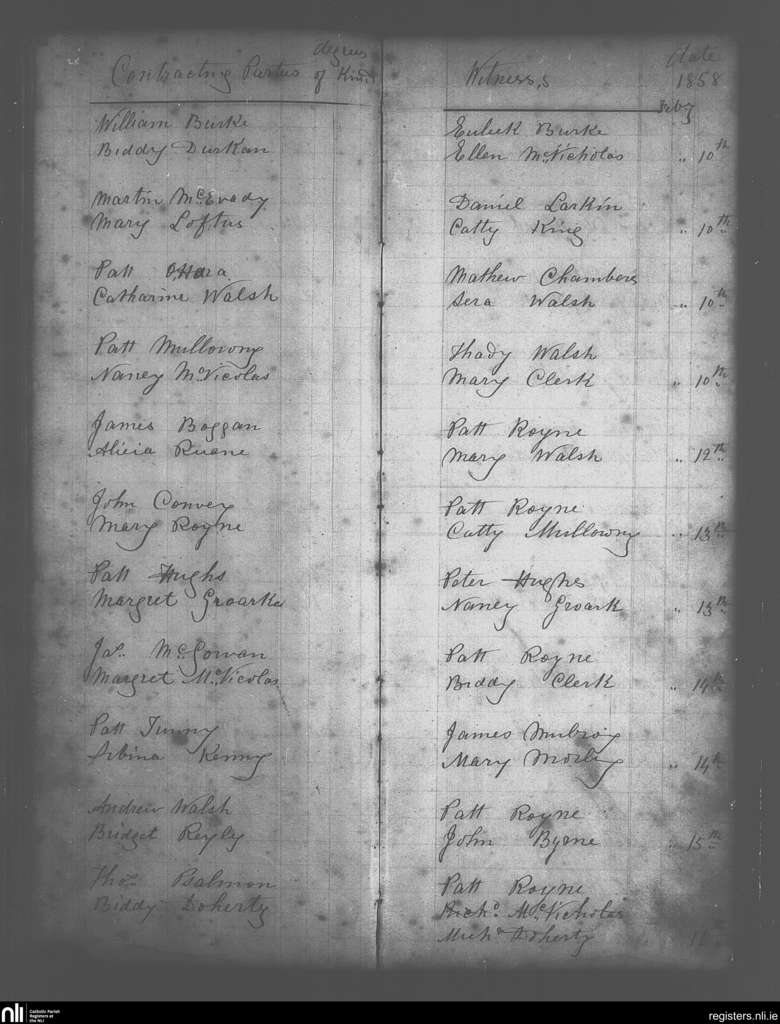 Contracting Parties degrees of Kind. Witness,s date 1858
Feby
William Burke Euleek Burke
Biddy Durkan Ellen McNicholas " 10th
Martin McEvady Daniel Larkin
Mary Loftus Catty King " 10th
Patt OHara Mathew Chambers
Catharine Walsh Sera Walsh " 10th
Patt Mullowny Thady Walsh
Nancy McNicolas Mary Clerk " 10th
James Boggan Patt Royne
Alicia Ruane Mary Walsh " 12th
John Convey Patt Royne
Mary Royne Catty Mullowny " 13th
Patt Hughs Peter Hughes
Margret Groarke Nancy Groark " 13th
Jas. McGowan Patt Royne
Margret McNicolas Biddy Clerk " 14th
Patt Tunny James Mulroy
Sibina Kenny Mary Morley " 14th
Andrew Walsh Patt Royne
Bridget Reyley John Byrne " 15th
Thos. Psalmon Patt Royne
Biddy Doherty Richd McNicholas
Michl Doherty
nli Catholic Parish Registers at the NLI registers.nli.ie